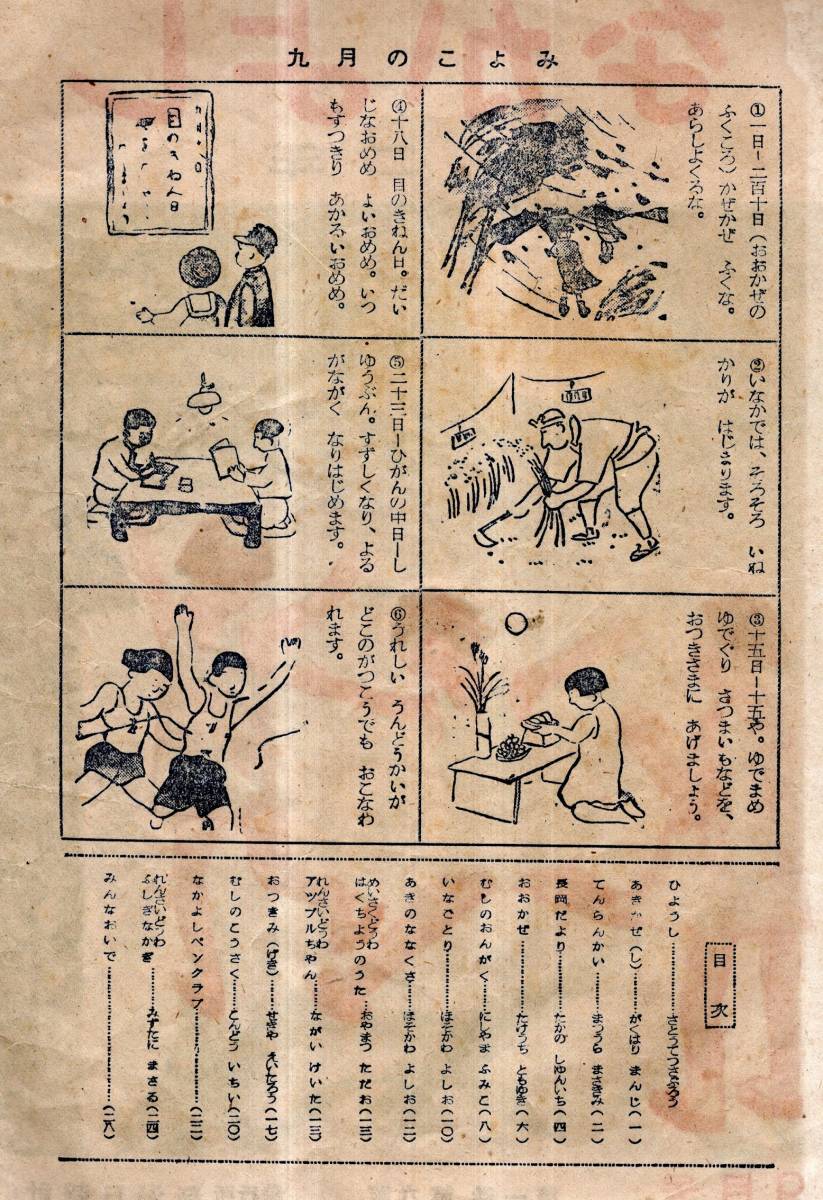 九月のこよみ
①一日－二百十日（おおかぜの
ふくころ）かぜかぜ　ふくな。
あらしよくるな。
②いなかでは、そろそろ　いね
かりが　はじまります。
③十五日－十五や。ゆでまめ
ゆでぐり　さつまいもなどを、
おつきさまに　あげましょう。
④十八日　目のきねん日。だい
じなおめめ　よいおめめ。いつ
もすつきり　あかるいおめめ。
目のきねん日
⑤二十三日－ひがんの中日－し
ゆうぶん。すずしくなり、よる
がながく　なりはじめます。
⑥うれしい　うんどうかいが
どこのがつこうでも　おこなわ
れます。
目次
ひようし…………さとうてつさぶろう
あきかぜ（し）………がくはり　まんじ（一）
てんらんかい………まつうら　まさきみ（二）
長岡だより…………たかの　しゅんいち（四）
おおかぜ…………たけうち　ともゆき（六）
むしのおんがく……にやま　ふみこ（八）
いなごとり…………ほそかわ　よしお（一〇）
あきのななくさ……ほそかわ　よしお（一二）
めいさくどうわ
はくちようのうた…おやまつ　ただお（一三）
れんさいどうわ
アツプルちやん………ながい　けいた（一三）
おつきみ（げき）………せきや　えいたろう（一七）
むしのこうさく………とんどう　いちい（二〇）
なかよしペンクラブ…………（二二）
れんさいどうわ
ふしぎなかぎ………みずたに　まさる（二四）
みんなおいで……………（二八）